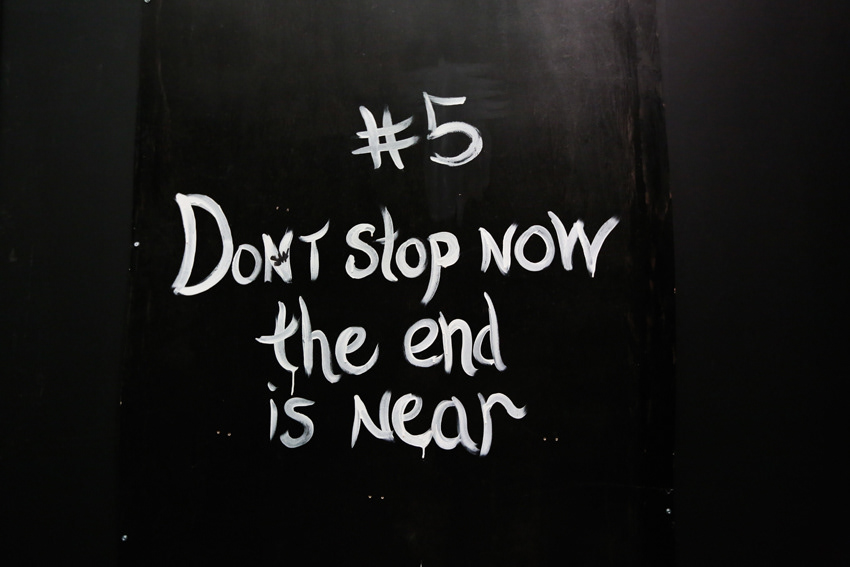 #5
DONT stop NOW
the end
is Near